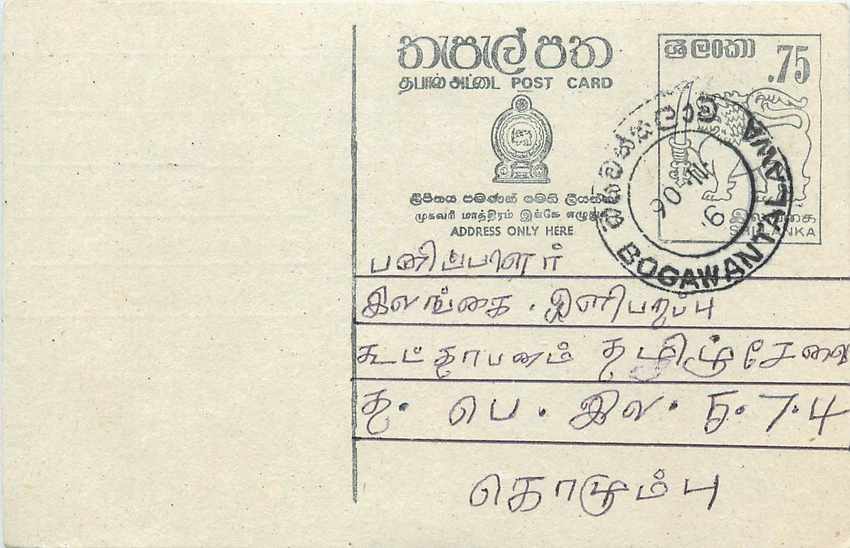 තැපැල් පත
தபால் அட்டை POST CARD
ලිපිනය පමණක් මෙහි ලියන්න
முகவரி மாத்திரம் இங்கே எழுதுக
ADDRESS ONLY HERE
ශ්‍රී ලංකා
.75
இலங்கை
SRI LANKA
BOGAWANTALAWA
பணிப்பாளர்
இலங்கை . ஒளிபரப்பு
கூட்தாபனம் தமிழ்சேவை
த. பெ. இல. 5.7.4
கொழும்பு